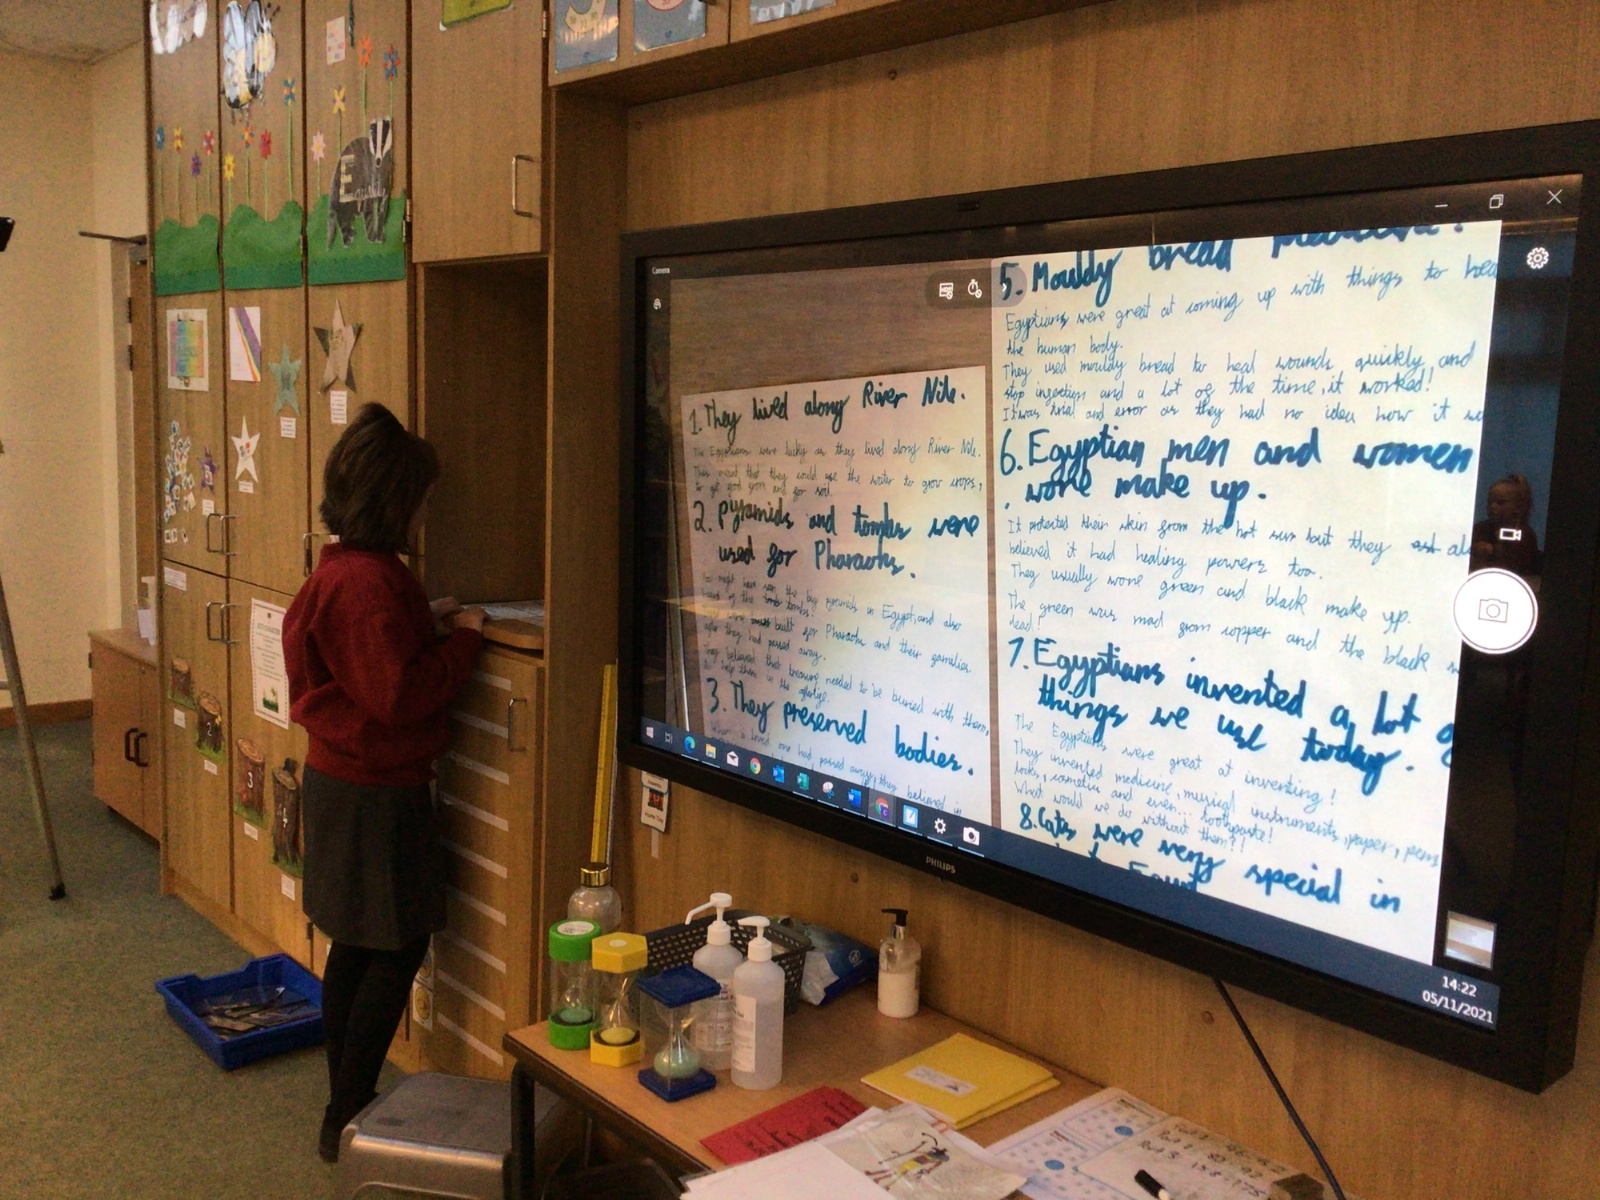 Equality
Camera
1. They lived along River Nile.
The Egyptians were lucky as they lived along River Nile.
This meant that they could use the water to grow crops,
2. pyramids and tombs were
used for Pharaohs.
the big pyramids in Egypt, and also
built for Pharaohs and their families
after they had passed away.
They believed that treasure needed to be buried with them,
to help them in the afterlife.
3. They preserved bodies.
When a loved one had passed away, they believed in
5. Mouldy bread medicine!
Egyptians were great at coming up with things to hea
the human body.
They used mouldy bread to heal wounds quickly and
stop infection and a lot of the time, it worked!
It was trial and error as they had no idea how it w
6. Egyptian men and women
wore make up.
It protected their skin from the hot sun but they al
believed it had healing powers too.
They usually wore green and black make up.
The green was mad from copper and the black
lead!
7. Egyptians invented a lot o
things we use today.
The Egyptians were great at inventing!
They invented medicine, musical instruments, paper, pens
locks, cosmetics and even... toothpaste!
What would we do without them?!
8. Cats were very special in
Egypt
14:22
05/11/2021
PHILIPS
2
3
4